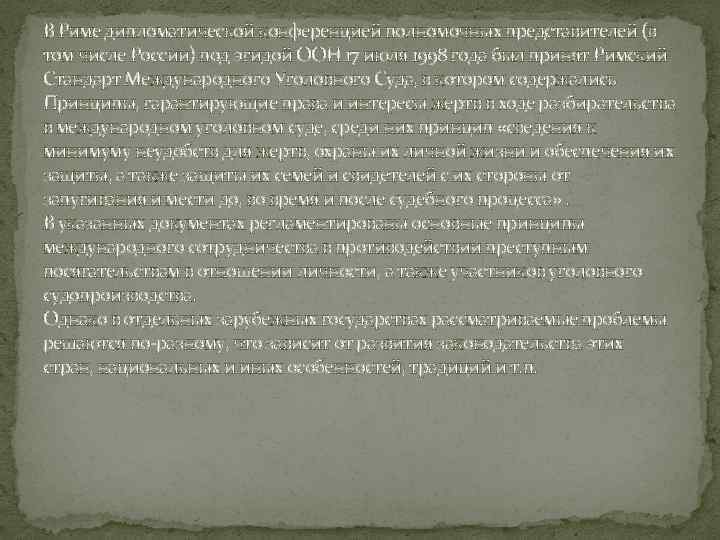 В Риме дипломатической конференцией полномочных представителей (в
том числе России) под эгидой ООН 17 июля 1998 года был принят Римский
Стандарт Международного Уголовного Суда, в котором содержались
Принципы, гарантирующие права и интересы жертв в ходе разбирательства
в международном уголовном суде, среди них принцип «сведения к
минимуму неудобств для жертв, охраны их личной жизни и обеспечения их
защиты, а также защиты их семей и свидетелей с их стороны от
запугивания и мести до, во время и после судебного процесса» .
В указанных документах регламентированы основные принципы
международного сотрудничества в противодействии преступным
посягательствам в отношении личности, а также участников уголовного
судопроизводства.
Однако в отдельных зарубежных государствах рассматриваемые проблемы
решаются по-разному, что зависит от развития законодательства этих
стран, национальных и иных особенностей, традиций и т.п.